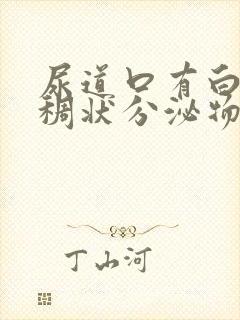 尿道口有白
稠状分泌物
丁山河